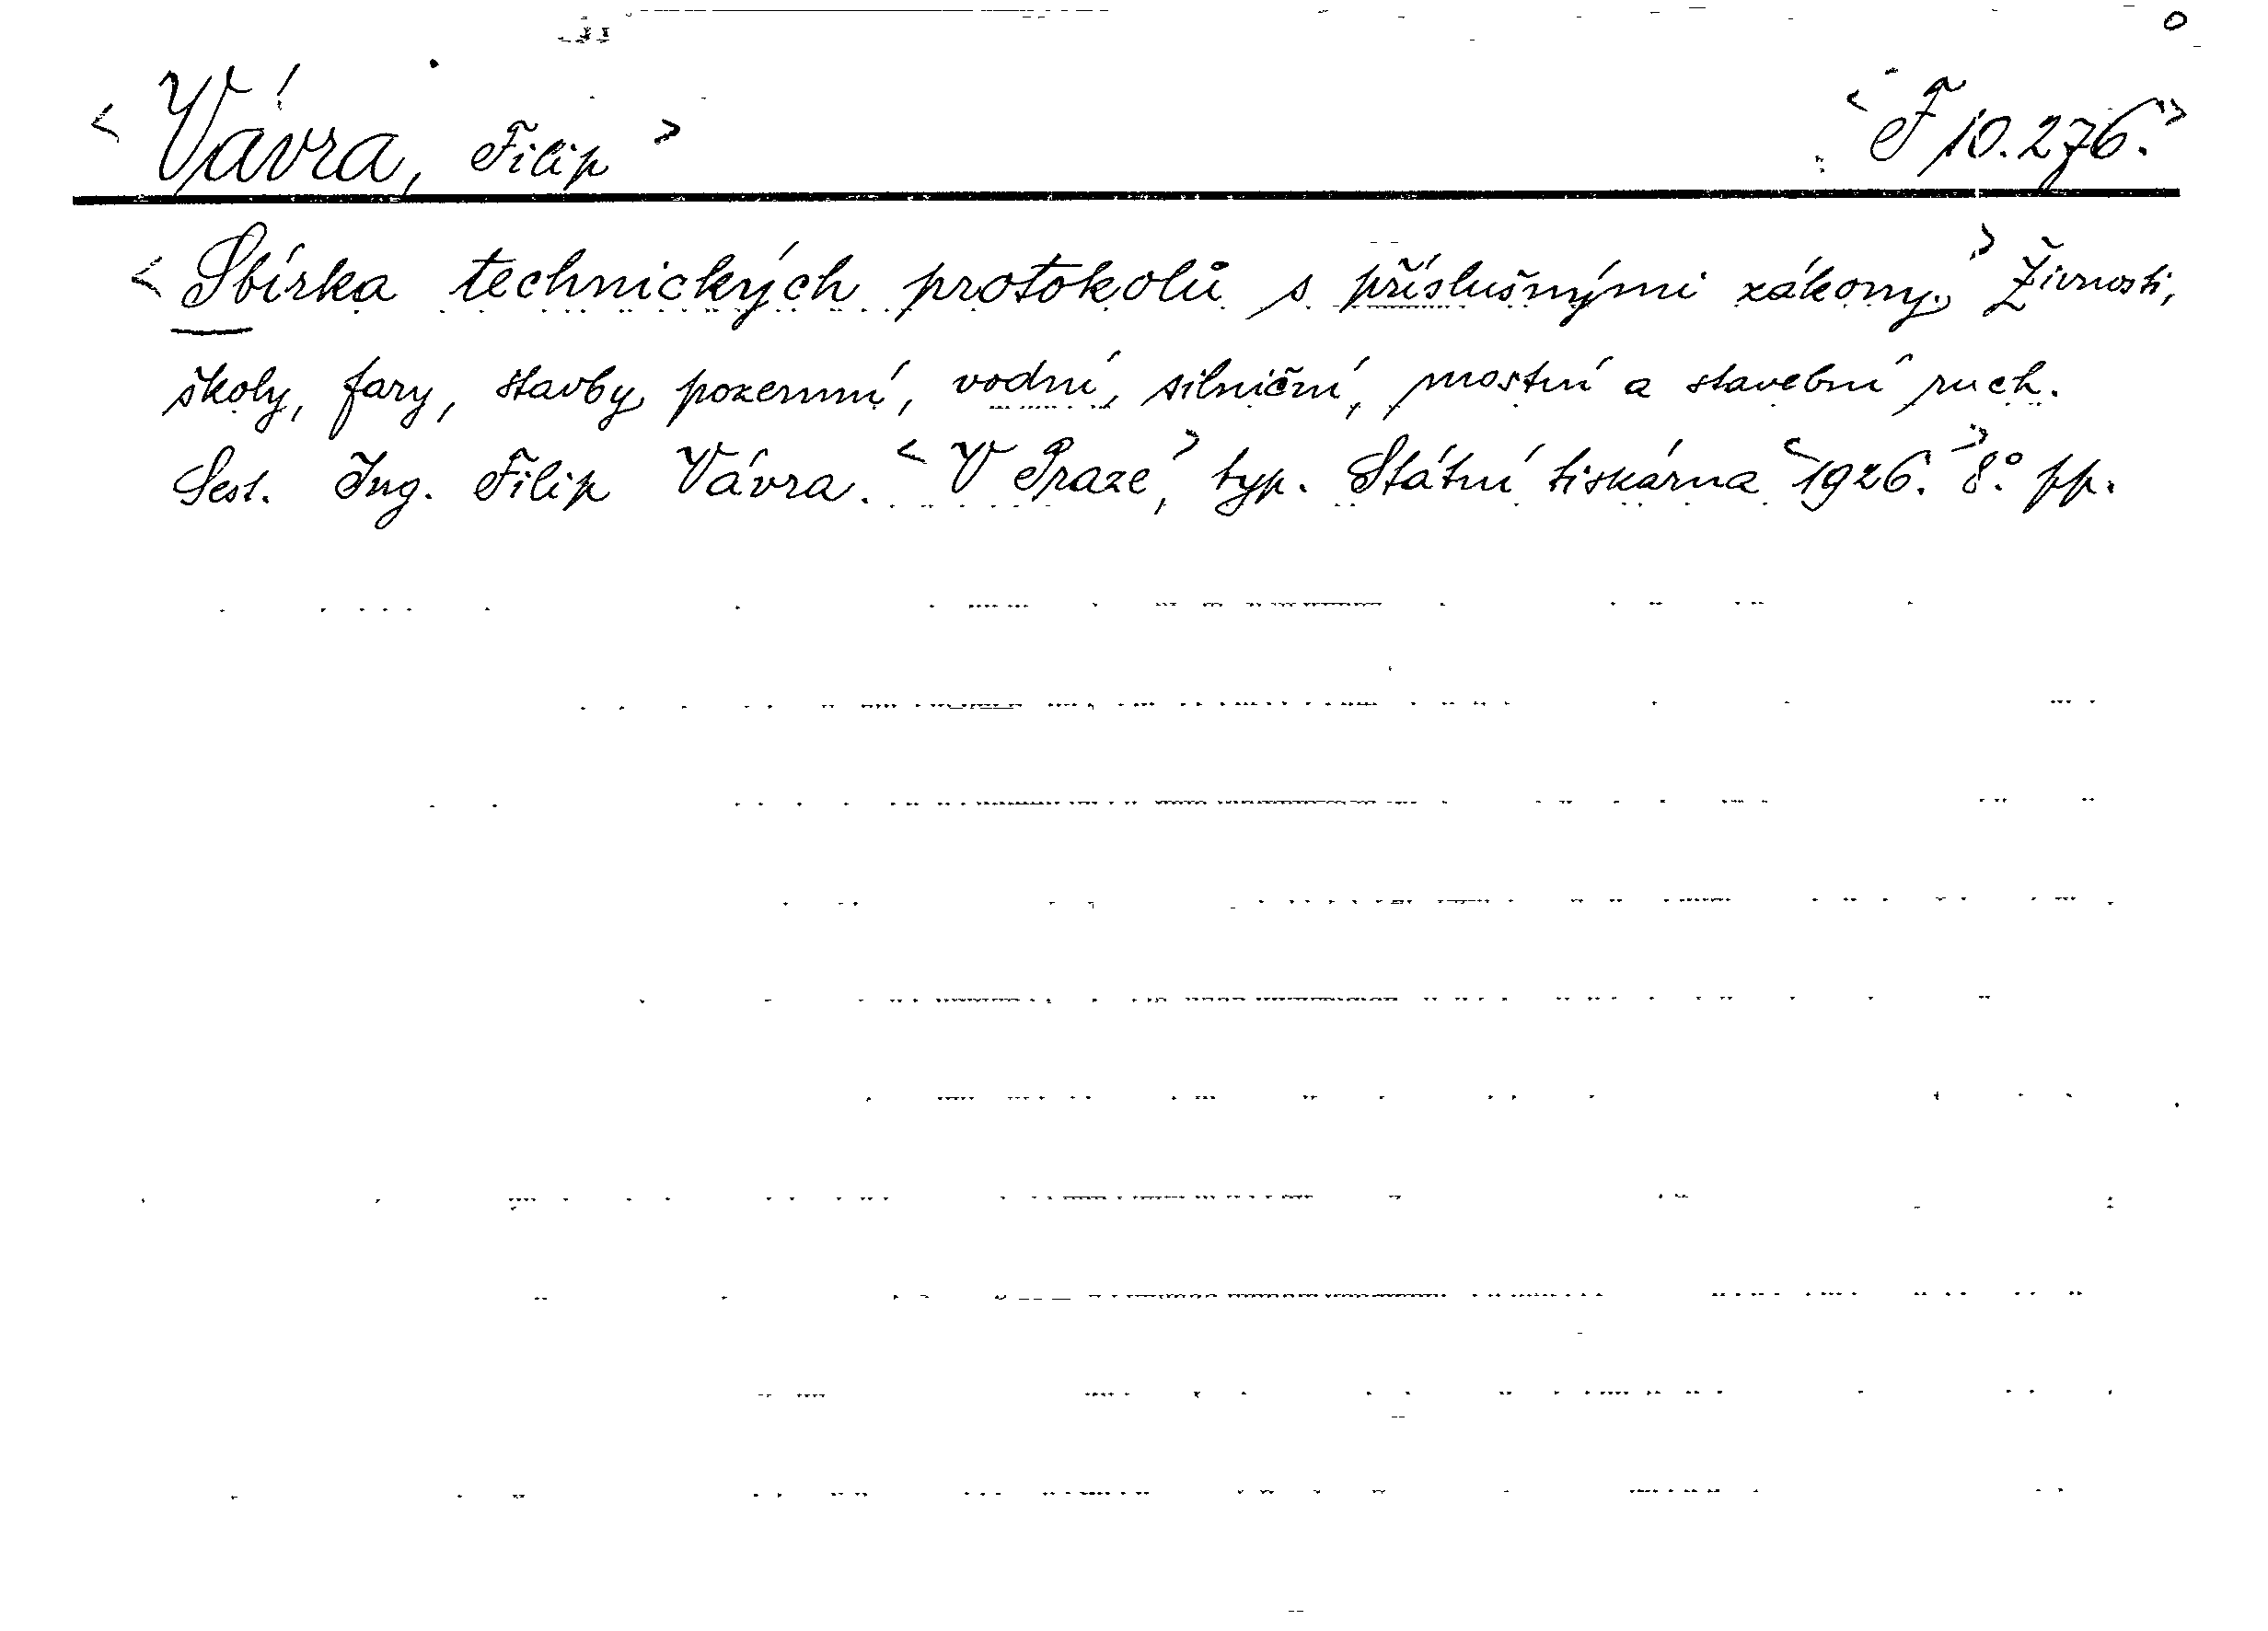 < Vávra, Filip > < F 10.276. >
< Sbírka technických protokolů s příslušnými zákony. > Živnosti,
školy, fary, stavby pozemní, vodní, silniční, mostní a stavební ruch.
Sest. Ing. Filip Vávra. < V Praze, > typ. Státní tiskárna < 1926. > 8° pp.